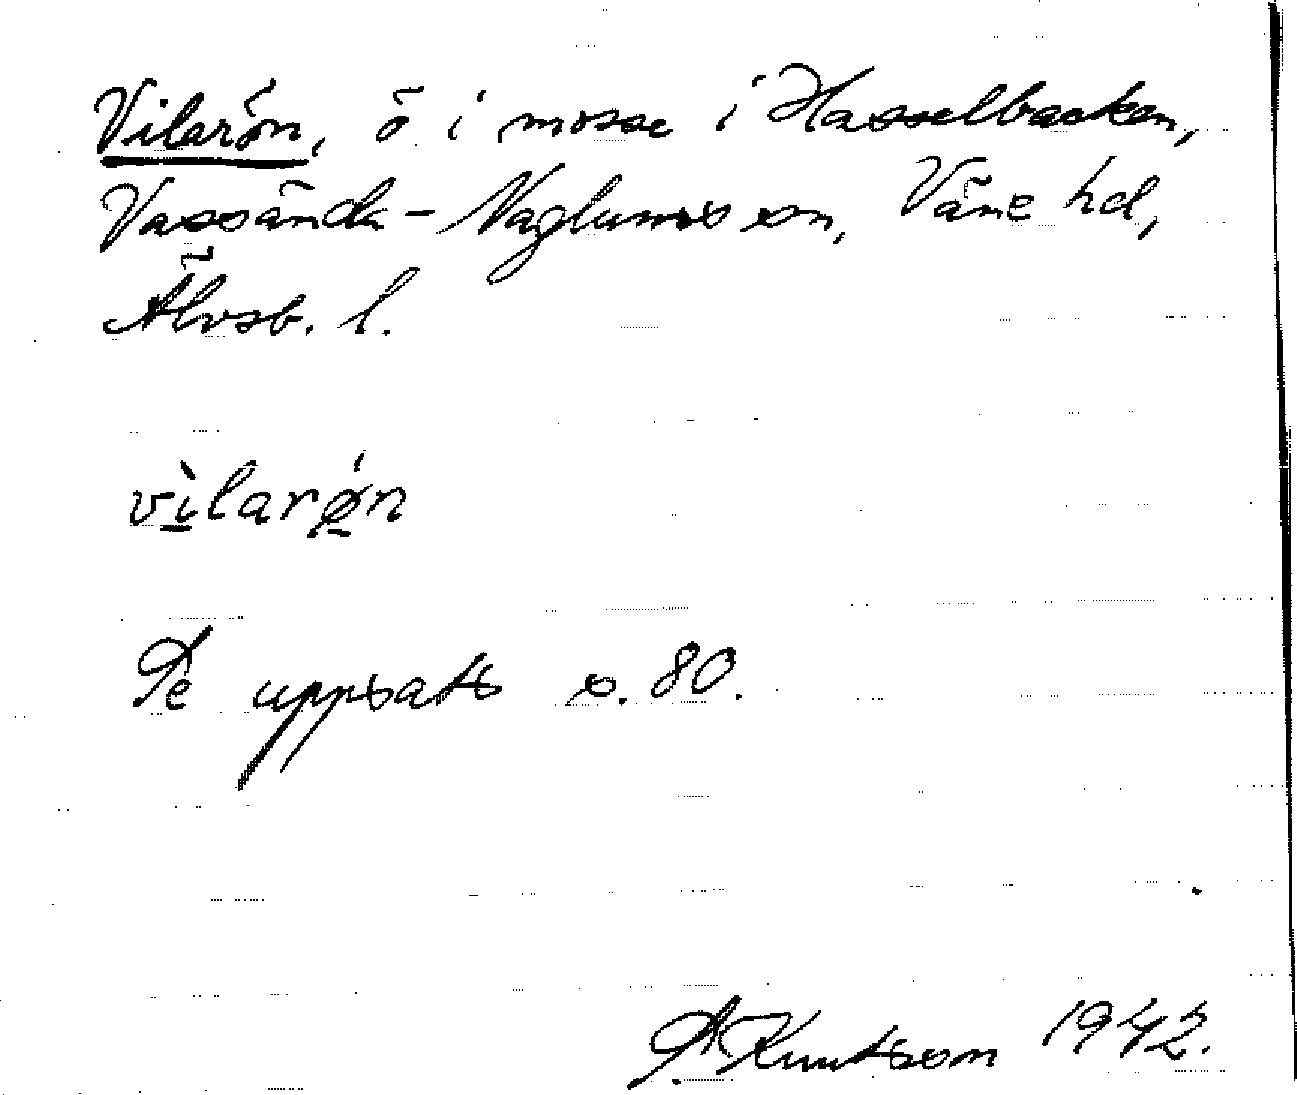 Vilarön, ö i mosse i Hasselbacken,
Vassända-Naglums sn, Väne hd,
Älvsb. l.
vìlarǿn
Se uppsats s. 80.
A Knutsson 1942.